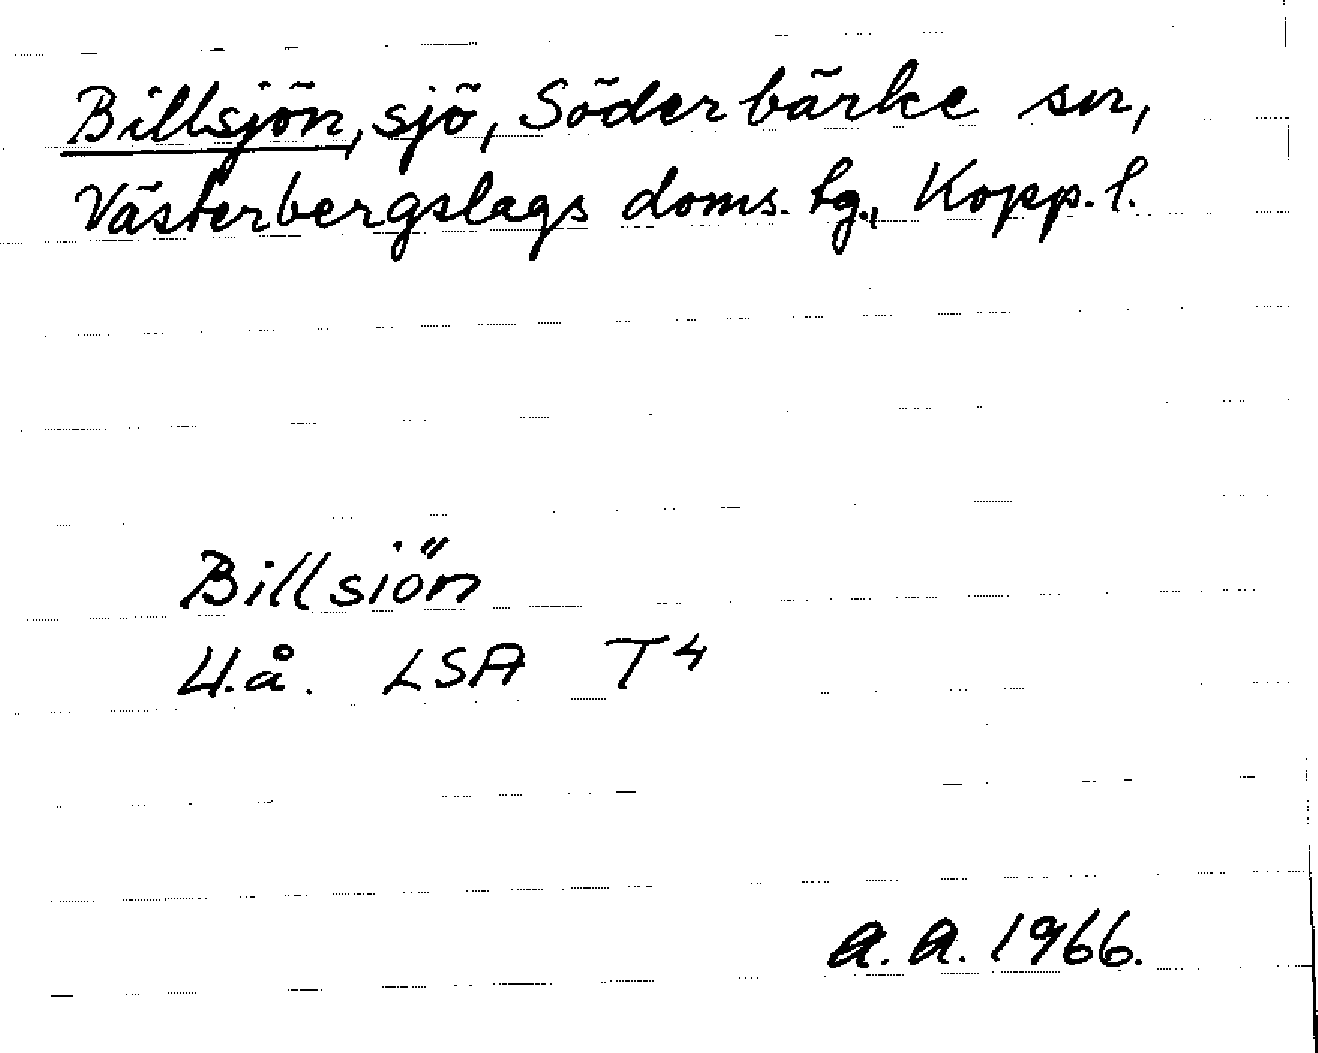 Billsjön, sjö, Söderbärke sn,
Västerbergslags doms. tg., Kopp. l.
Billsjön
U.å. LSA T4
a.a. 1966.